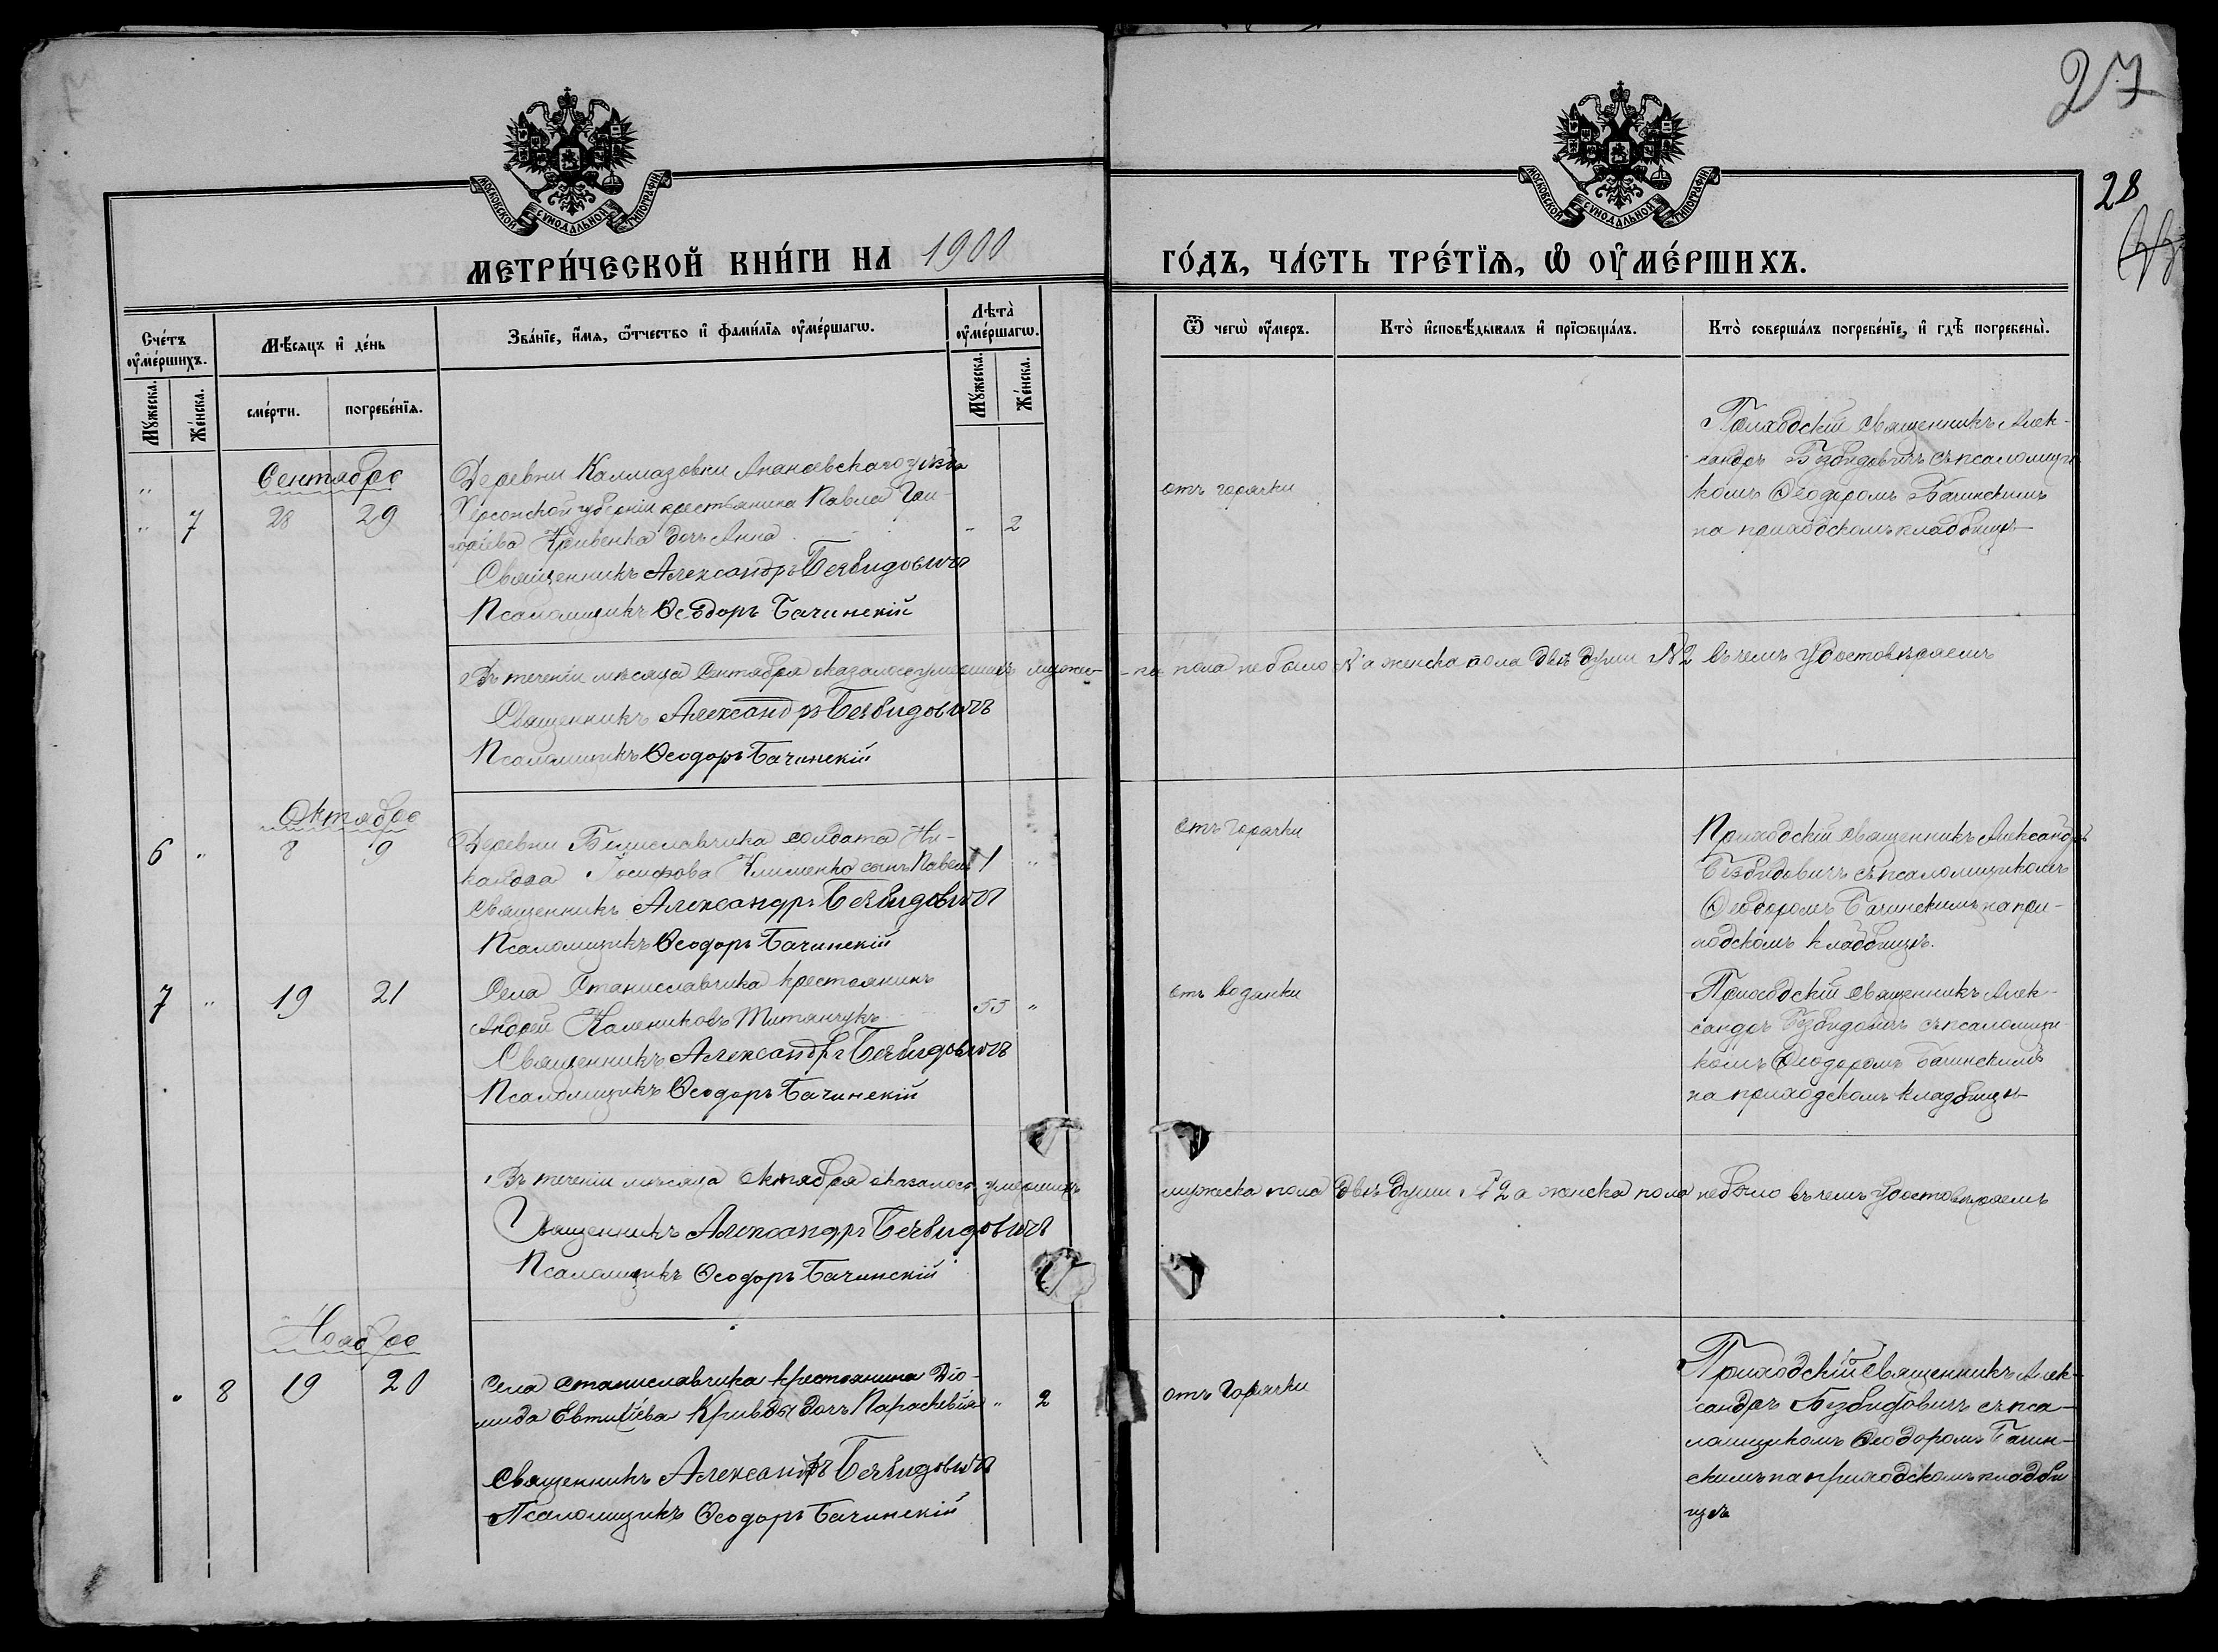 27
28
МОСКОВСКОЙ СѴНОДАЛЬНОЙ ТИПОГРАФІИ
МОСКОВСКОЙ СѴНОДАЛЬНОЙ ТИПОГРАФІИ
МЕТРИ́ЧЕСКОЙ КНИ́ГИ НА 1900
ГО́ДЪ, ЧА́СТЬ ТРЕ́ТЇѦ, Ѡ҆ ОУ҆МЕ́РШИХЪ.
Сче́тъ оу҆ме́ршихъ.
Мѣ́сяцъ и҆ де́нь
Зва́нїе, и҆́мѧ, ѻ҆́тчество и҆ фами́лїѧ оу҆ме́ршагѡ.
Лѣта̀ оу҆ме́ршагѡ.
Ѿ чегѡ̀ оу҆́меръ.
Кто̀ и҆сповѣ́дывалъ и҆ прїѡбща́лъ.
Кто̀ соверша́лъ погребе́нїе, и҆ гдѣ̀ погребены̀.
Мꙋ́жеска. Же́нска. сме́рти. погребе́нїѧ. Мꙋ́жеска. Же́нска.
Сентябрь
" 7 28 29
Деревни Калмазовки Ананьевскаго уѣзда
Херсонской губерніи крестьянина Павла Гри-
горіева Кривенка дочь Анна " 2
Священникъ Александръ Безвидовичъ
Псаломщикъ Ѳеодоръ Бачинскій
отъ горячки
Приходскій священникъ Алек-
сандръ Безвидовичъ съ псаломщи-
комъ Ѳеодоромъ Бачинскимъ
на приходскомъ кладбищѣ
Въ теченіи мѣсяца Сентября оказалось умершихъ мужес-
-ка пола не было № а женска пола двѣ души № 2 въ чемъ удостовѣряемъ
Священникъ Александръ Безвидовичъ
Псаломщикъ Ѳеодоръ Бачинскій
Октябрь
6 " 8 9
Деревни солдата Ни-
Іосифова Клименка сынъ Павелъ 1 "
Священникъ Александръ Безвидовичъ
Псаломщикъ Ѳеодоръ Бачинскій
отъ горячки
Приходскій священникъ Александръ
Безвидовичъ съ псаломщикомъ
Ѳеодоромъ Бачинскимъ на при-
ходскомъ кладбищѣ.
7 " 19 21
Села Станиславчика крестьянинъ
Андрей Калениковъ Титанчукъ 55 "
Священникъ Александръ Безвидовичъ
Псаломщикъ Ѳеодоръ Бачинскій
отъ водянки
Приходскій священникъ Алек-
сандръ Безвидовичъ съ псаломщи-
комъ Ѳеодоромъ Бачинскимъ
на приходскомъ кладбищѣ
Въ теченіи мѣсяца Октября оказалось умершихъ
мужеска пола двѣ души № 2 а женска пола не было въ чемъ удостовѣряемъ
Священникъ Александръ Безвидовичъ
Псаломщикъ Ѳеодоръ Бачинскій
Ноябрь
" 8 19 20
Села Станиславчика крестьянина Діо-
мида Евтихіева Кривды дочь Параскевія " 2
Священникъ Александръ Безвидовичъ
Псаломщикъ Ѳеодоръ Бачинскій
отъ горячки
Приходскій священникъ Алек-
сандръ Безвидовичъ съ пса-
ломщикомъ Ѳеодоромъ Бачин-
скимъ на приходскомъ кладби
щѣ